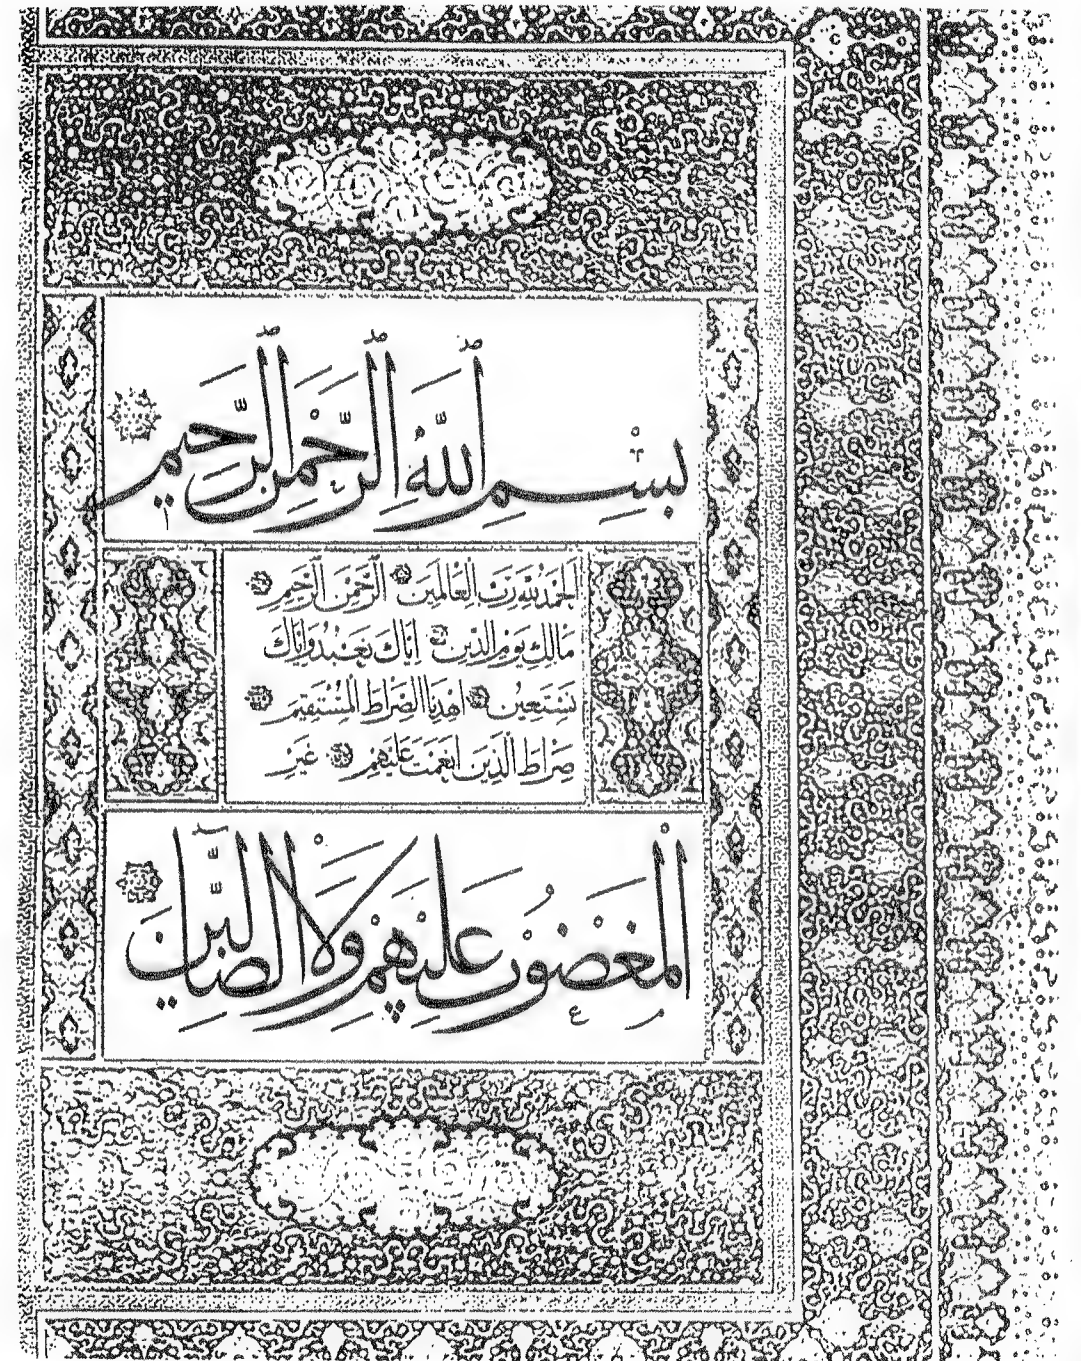 بِسْمِ اللَّهِ الرَّحْمَنِ الرَّحِيمِ
اَلْحَمْدُ لِلَّهِ رَبِّ الْعَالَمِينَ الرَّحْمَنِ الرَّحِيمِ
مَالِكِ يَوْمِ الدِّينِ اِيَّاكَ نَعْبُدُ وَاِيَّاكَ
نَسْتَعِينُ اِهْدِنَا الصِّرَاطَ الْمُسْتَقِيمَ
صِرَاطَ الَّذِينَ اَنْعَمْتَ عَلَيْهِمْ غَيْرِ
الْمَغْضُوبِ عَلَيْهِمْ وَلَا الضَّالِّينَ